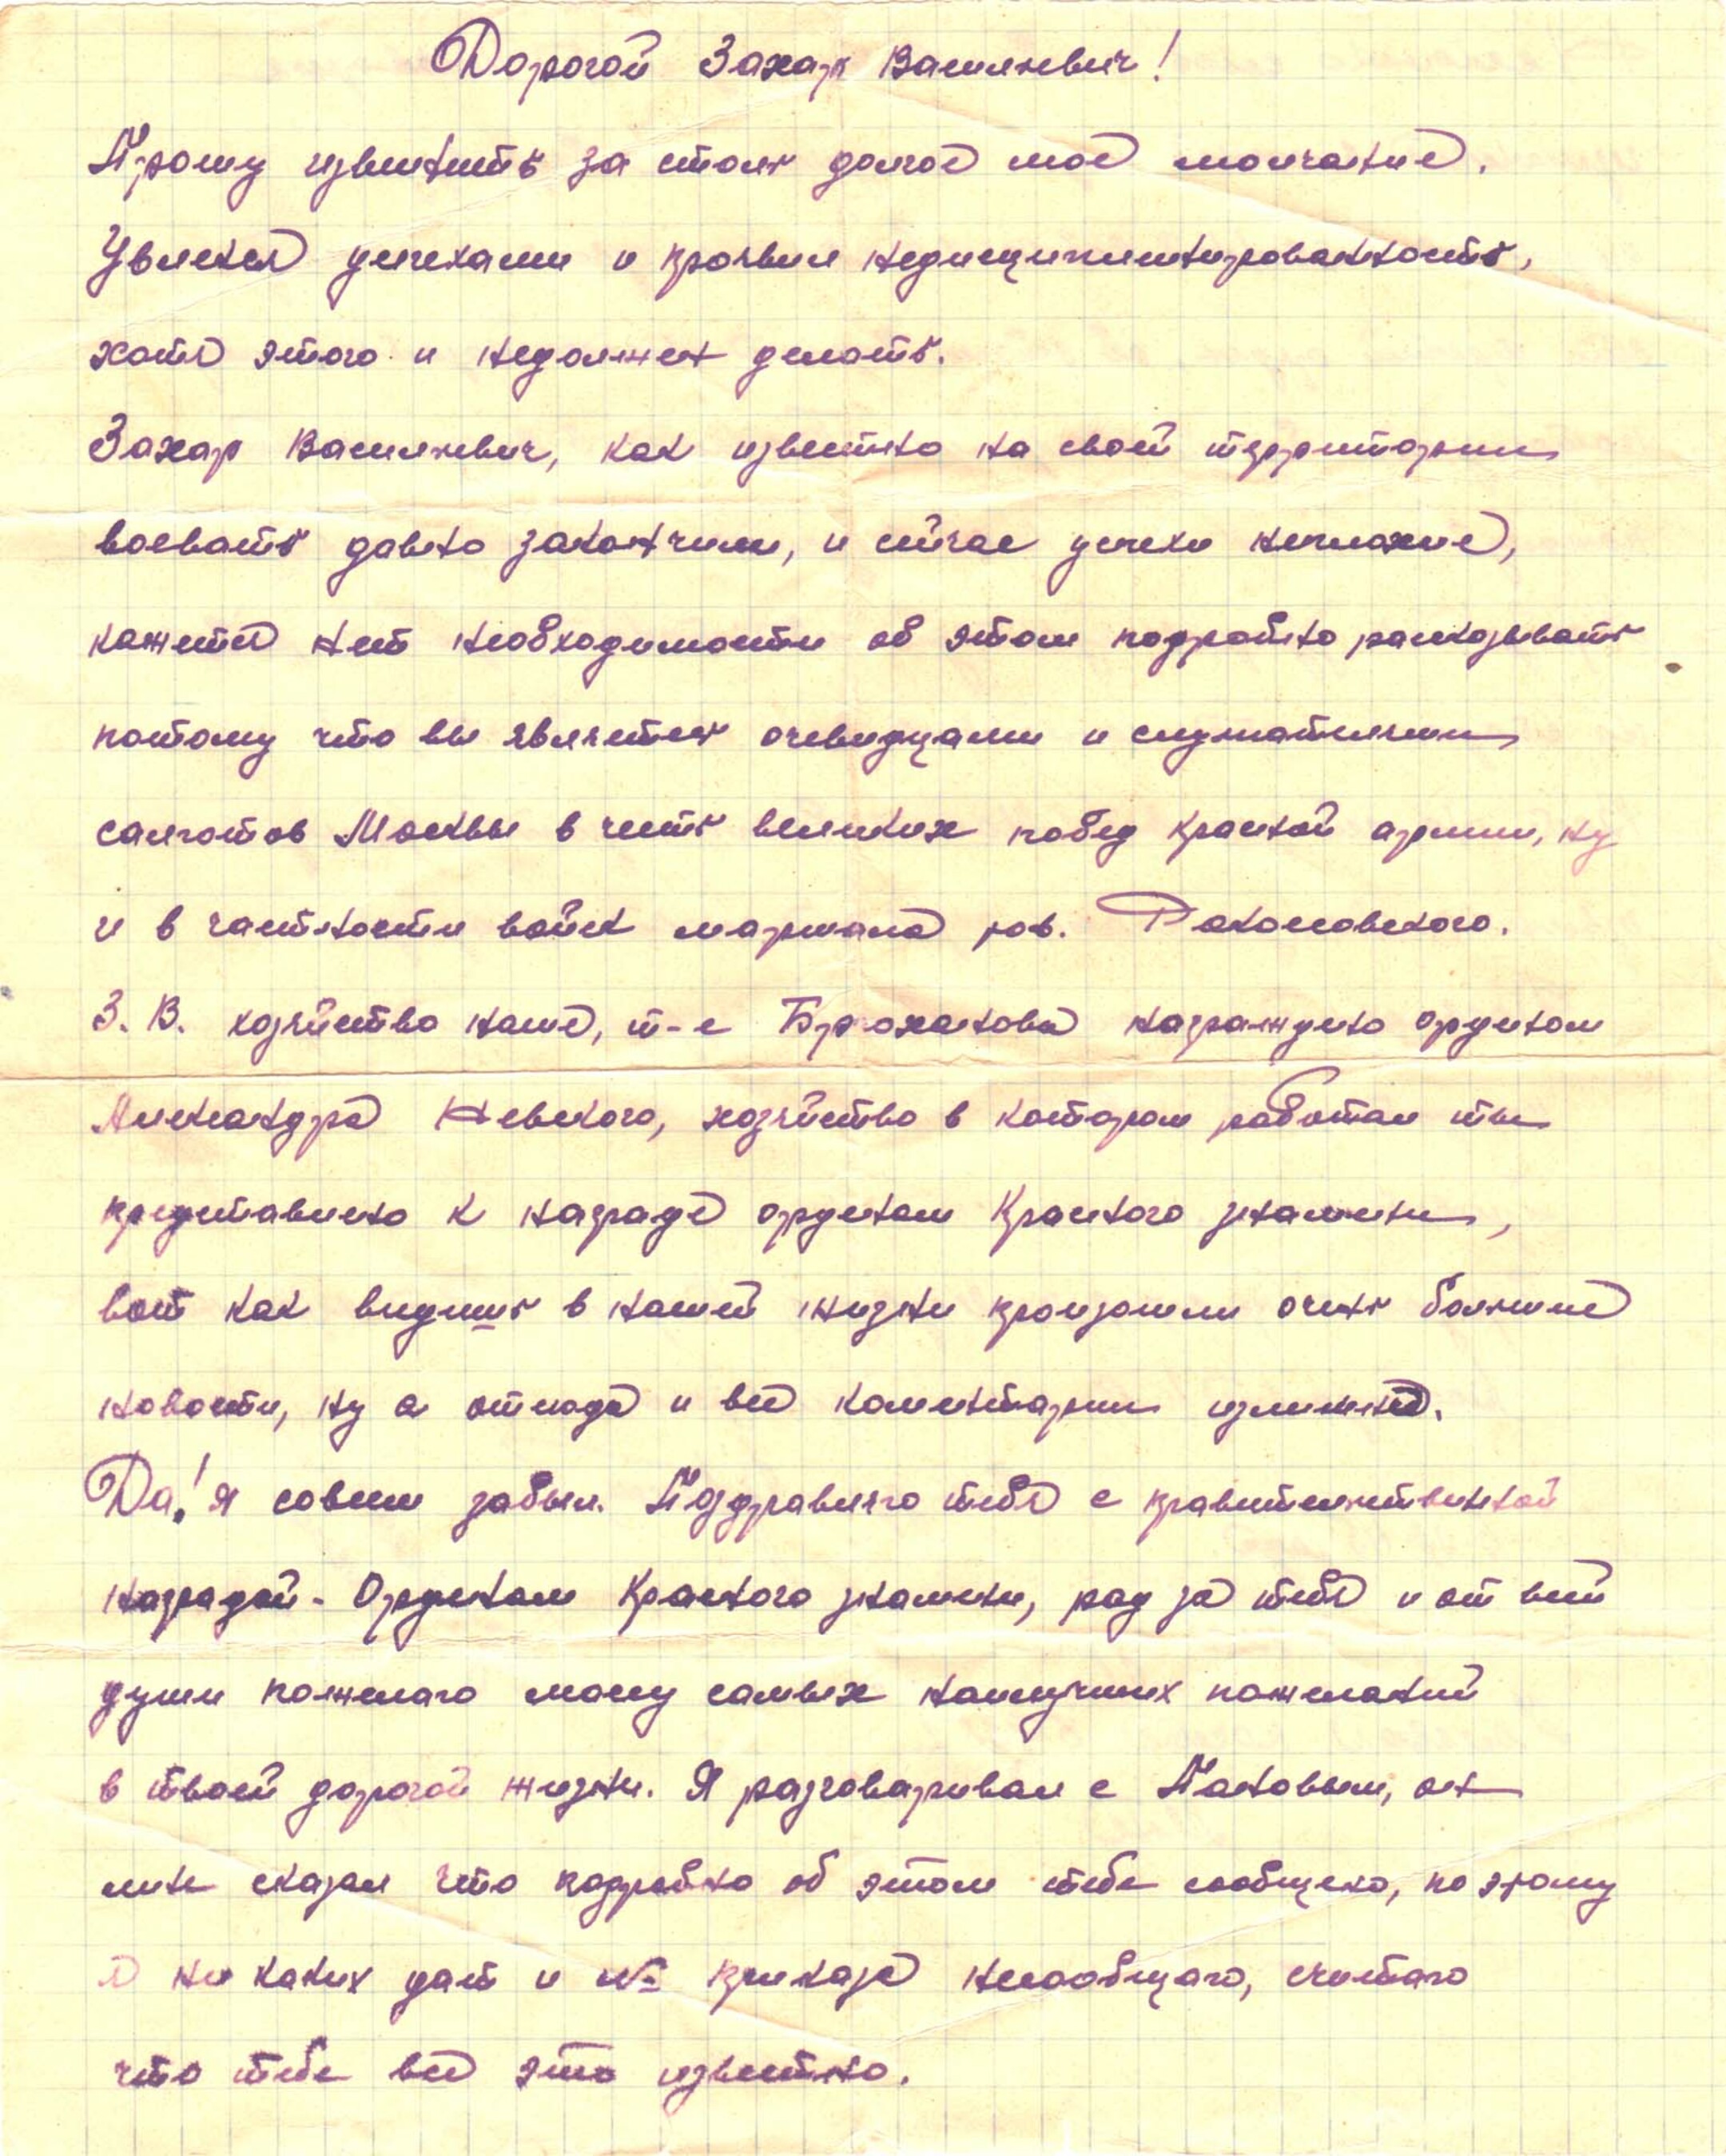 Дорогой Захар Васильевич!
Прошу извинить за столь долгое мое молчание.
Увлекся успехами и проявил недисциплинированность,
хотя этого и недолжен делать.
Захар Васильевич, как известно на своей территории
воевать давно закончили, и сйчас успехи неплохие,
кажется нет необходимости об этом подробно рассказывать
потому что вы являетесь очевидцами и слушателями
салютов Москвы в честь великих побед красной армии, ну
и в частности войск маршала тов. Рокоссовского.
З. В. хозяйство наше, т-е Брюханова награждено орденом
Александра Невского, хозяйство в котором работал ты
представлено к награде орденом Красного знамени,
вот как видишь в нашей жизни произошли очень большие
новости, ну а отсюда и все коментарии излишне.
Да! я совсем забыл. Поздравляю тебя с правительственной
наградой - Орденом Красного знамени, рад за тебя и от всей
души пожелаю массу самых наилучших пожеланий
в твоей дорогой жизни. Я разговаривал с Пановым, он
мне сказал что подробно об этом тебе сообщено, по этому
я ни каких дат и № приказа несообщаю, считаю
что тебе все это известно.